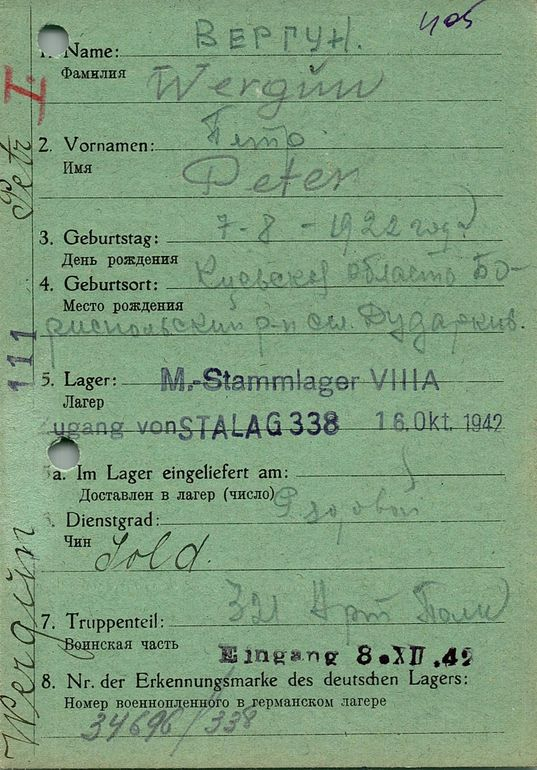 405
1. Name: ВЕРГУН.
Фамилия
Wergun
2. Vornamen: Петро
Имя
Peter
3. Geburtstag: 7-8-1922 года
День рождения
4. Geburtsort: Киевская область Бо-
Место рождения
риспольский р-н сл. Дударкив.
5. Lager: M.-Stammlager VIIIA
Лагер
Zugang von STALAG 338 16. Okt. 1942
5a. Im Lager eingeliefert am:
Доставлен в лагер (число)
6. Dienstgrad: Рядовой
Чин Sold.
7. Truppenteil: 321 Арт Полк
Воинская часть
Eingang 8. XII. 42
8. Nr. der Erkennungsmarke des deutschen Lagers:
Номер военнопленного в германском лагере
34696/338
Wergun
111
Petr
I.